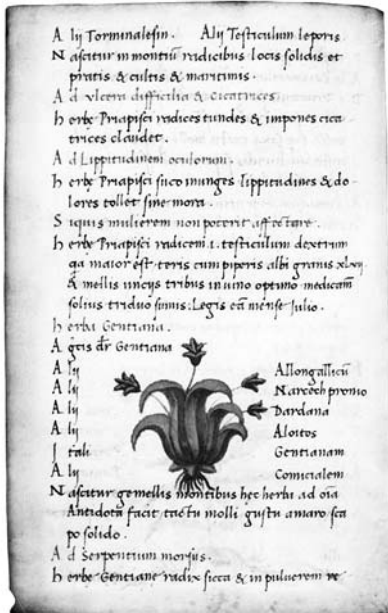 A lij Torminalesin. Alij Testiculum leporis.
N ascitur in montiū radicibus locis solidis et
pratis & cultis & maritimis.
A d vlcera difficilia & cicatrices
h erbę Priapisci radices tundes & impones cica
trices claudet.
A d Lippitudinem oculorum.
h erbę Priapisci suco inunges lippitudines & do
lores tollet sine mora.
S iquis mulierem non poterit affectare.
h erbę Priapisci radicem .i. testiculum dextrum
qa maior est teris cum piperis albi granis
& mellis uncijs tribus in uino optimo medicam
solius triduo sumis: Legis eā mense Julio.
h erba Gentiana.
A gcis dr̄ Gentiana
A lij Allongallicū
A lij Narcech promo
A lij Dardana
A lij Aloitos
I tali Gentianam
A lij Comicialem
N ascitur gemellis montibus hec herba ad oīa
Antidota facit tactu molli gustu amaro sca
po solido.
A d Serpentium morsus.
h erbe Gentiane radix sicca & in puluerem re